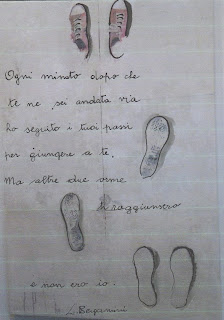 Ogni minuto dopo che
te ne sei andata via
ho seguito i tuoi passi
per giungere a te.
Ma altre due orme
ti raggiunsero
e non ero io.